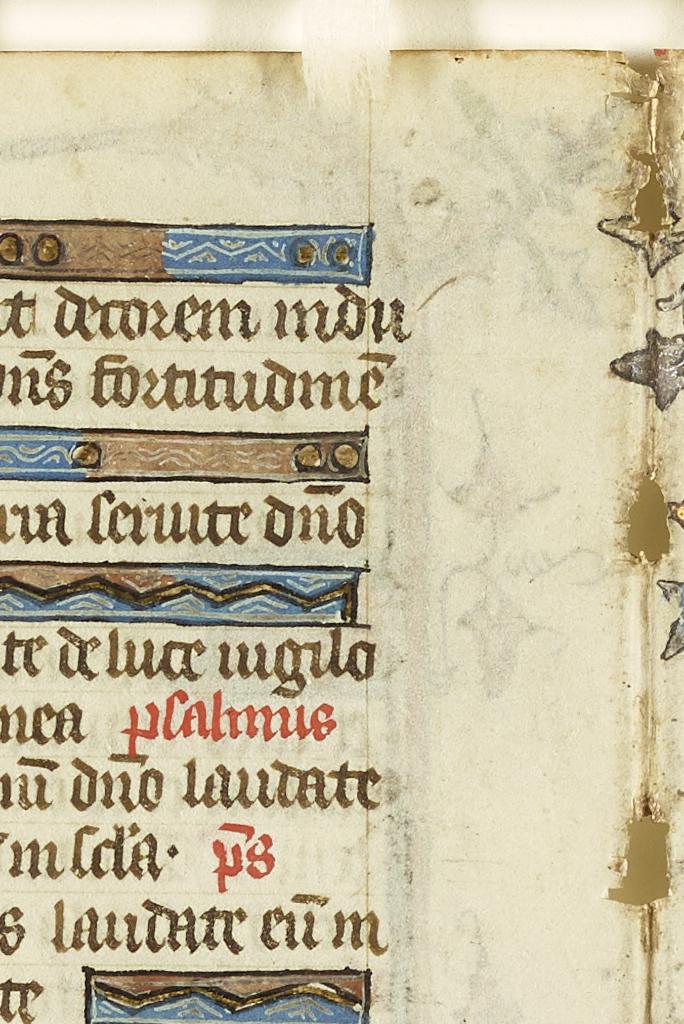 t decorem indu
dn̄s fortitudinē
ria seruite dn̄o
te de luce uigilo
mea psalmus
nū dn̄o laudate
in scl̄a· p̄s
s laudate eū in
te